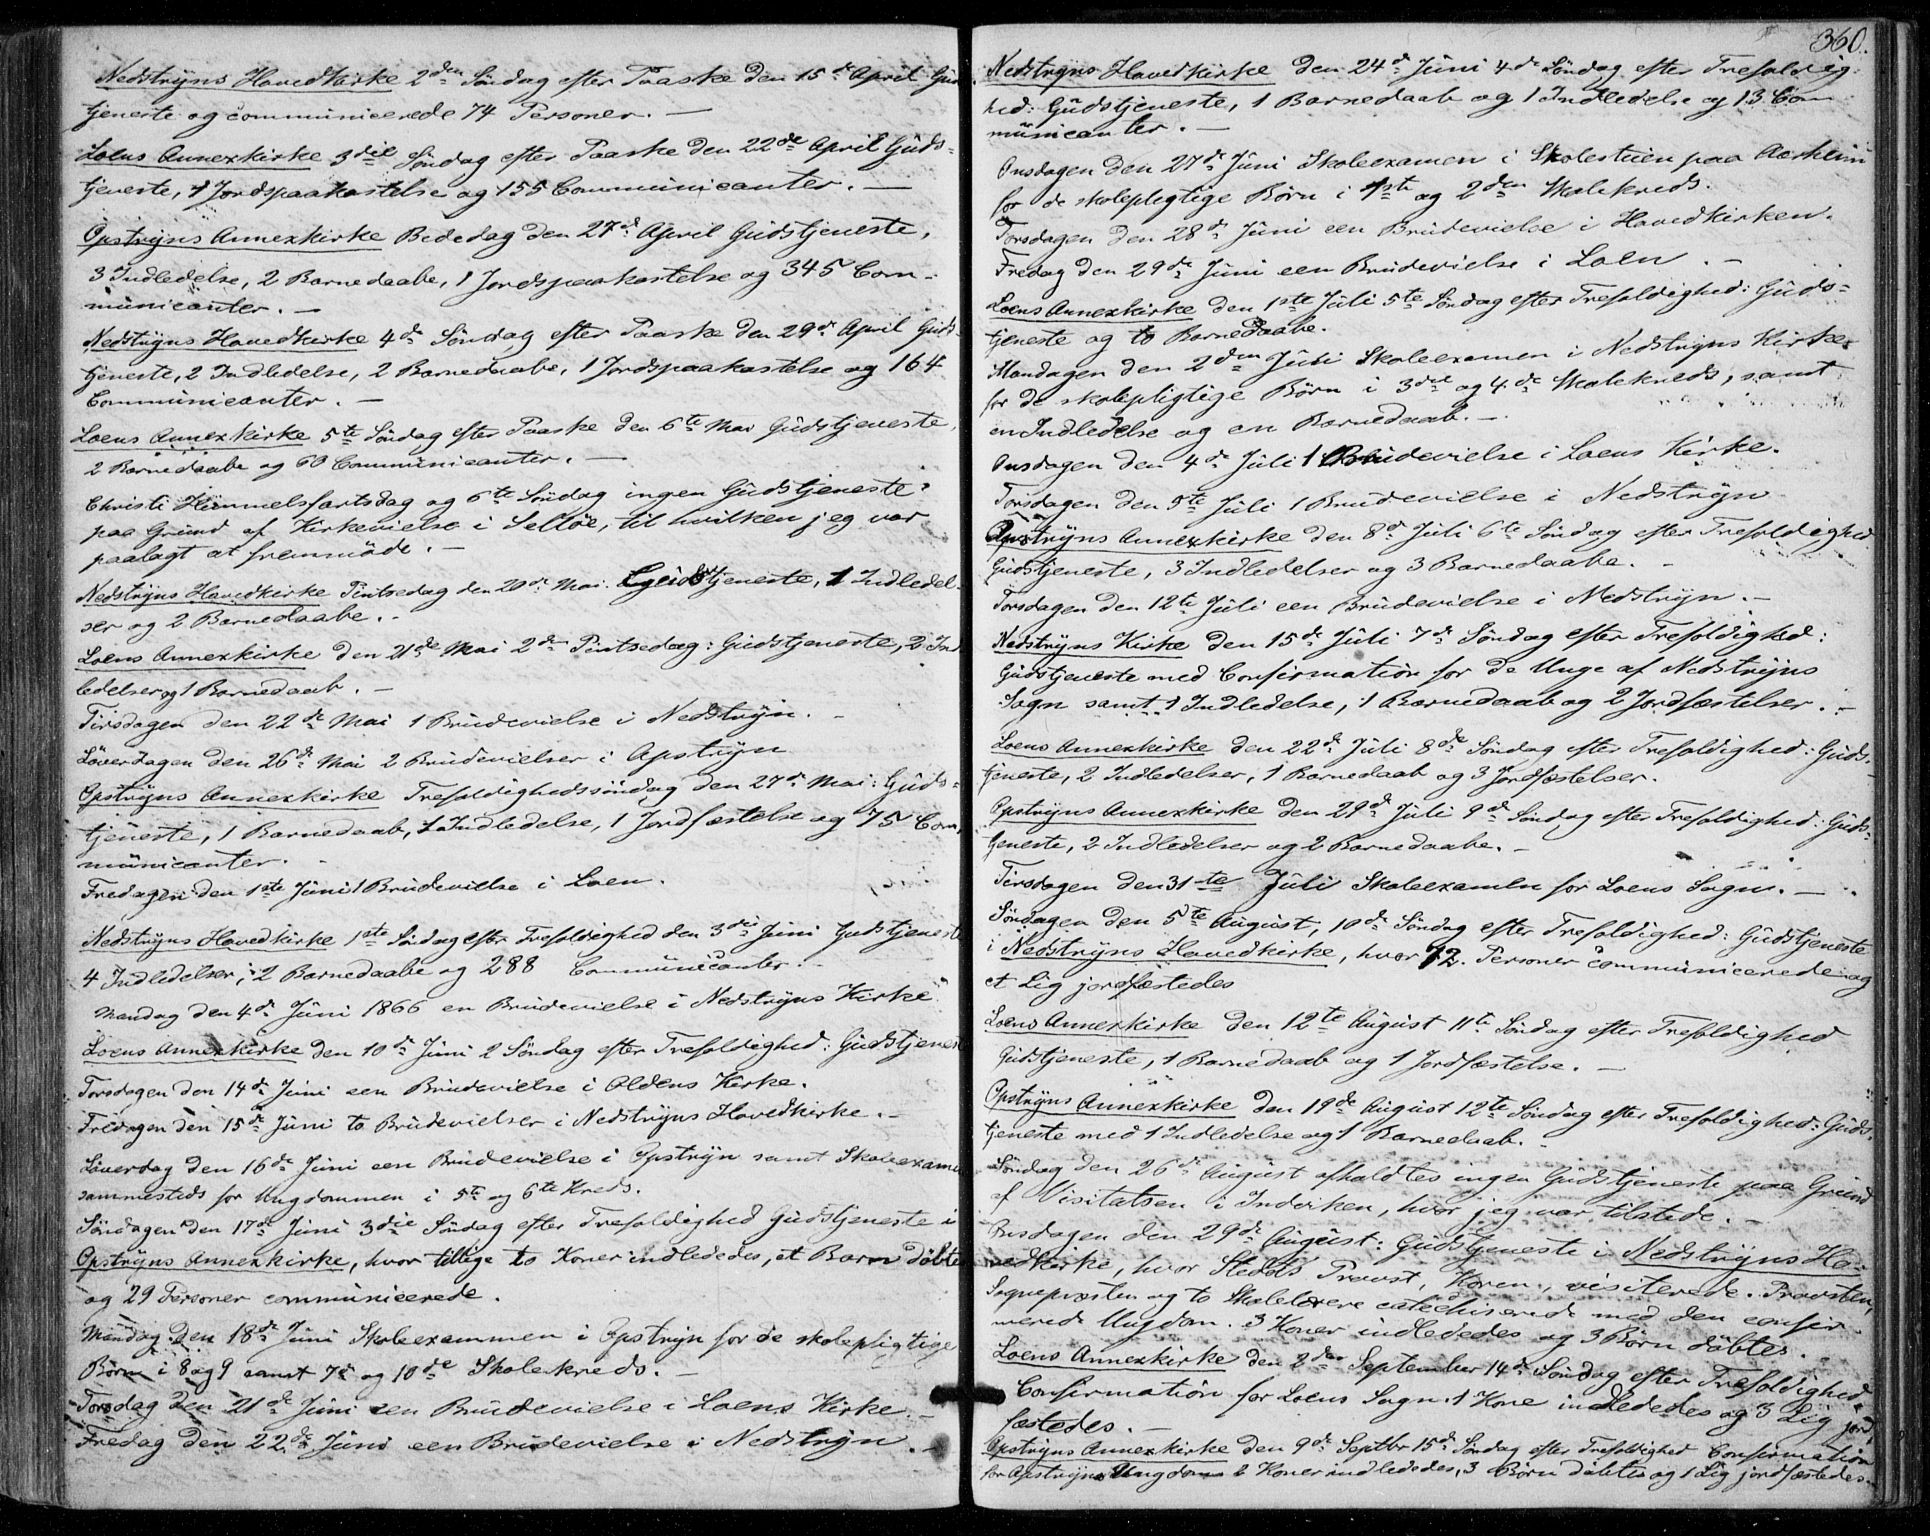 Nedstrÿns Hovedkirke 2den Söndag efter Paaske den 15de April Gud
tjeneste og communicerede 74 Personer. —
Loens Annexkirke 3die Söndag efter Paaske den 22de April Guds-
tjeneste, 1 Jordspaakastelse og 155 Communicanter. —
Opstrÿns Annexkirke Bededag den 27de April Gudstjeneste,
3 Indledelse, 2 Barnedaabe, 1 Jordspaakastelse og 345 Com-
municanter. —
Nedstrÿns Hovedkirke 4de Söndag efter Paaske den 29de April Guds-
tjeneste, 2 Indledelse, 2 Barnedaabe, 1 Jordspaakastelse og 164
Communicanter. —
Loens Annexkirke 5te Söndag efter Paaske den 6te Mai Gudstjeneste,
2 Barnedaabe og 60 Communicanter. —
Christi Himmelsfartsdag og 6te Söndag ingen Gudstjeneste
paa Grund af Kirkevielse i Selløe, til hvilken jeg var
paalagt at fremmöde. —
Nedstrÿns Hovedkirke Pintsedag den 20de Mai. Gudstjeneste, 1 Indledel-
ser og 2 Barnedaabe. -
Loens Annexkirke den 21de Mai 2de Pintsedag: Gudstjeneste, 2 Ind
ledelser og 1 Barnedaab. -
Tirsdagen den 22de Mai 1 Brudevielse i Nedstrÿn. -
Löverdagen den 26de Mai 2 Brudevielser i Opstrÿn
Opstrÿns Annexkirke Trefoldighedssöndag den 27de Mai: Guds-
tjeneste, 1 Barnedaab, 1 Indledelse, 1 Jordfæstelse og 75 Com
municanter. -
Fredagen den 1ste Juni 1 Brudevielse i Loen.
Nedstrÿns Hovedkirke 1ste Söndag efter Trefoldighed den 3die Juni Gudstjeneste
4 Indledelser, 2 Barnedaabe og 288 Communicanter. -
Mandag den 4de Juni 1866 en Brudevielse i Nedstrÿns Kirke
Loens Annexkirke den 10de Juni 2 Söndag efter Trefoldighed: Gudstjenest
Torsdagen den 14de Juni een Brudevielse i Oldens Kirke.
Fredagen den 15de Juni to Brudevielser i Nedstrÿns Hovedkirke. -
Löverdag den 16de Juni een Brudevielse i Opstrÿn samt Skoleexame
sammesteds for Ungdommen i 5te og 6te Kreds.
Söndagen den 17de Juni 3die Söndag efter Trefoldighed Gudstjeneste i
Opstrÿns Annexkirke, hvor tillige to Koner indlededes, et Barn döbtes
og 29 Personer communicerede.
Mandag den 18de Juni Skoleexammen i Opstrÿn for de skolepligtige
Börn i 8 og 9 samt 7de og 10de Skolekreds. -
Torsdag den 21de Juni een Brudevielse i Loens Kirke. -
Fredag den 22de Juni een Brudevielse i Nedstrÿn. -
360.
Nedstrÿns Hovedkirke den 24de Juni 4de Söndag efter Trefoldig-
hed: Gudstjeneste, 1 Barnedaab og 1 Indledelse og 13 Com
municanter. —
Onsdagen den 27de Juni Skoleexamen i Skolestuen paa Aarheim
for de skolepligtige Börn i 1ste og 2den Skolekreds.
Torsdagen den 28de Juni een Brudevielse i Hovedkirken.
Fredag den 29de Juni een Brudevielse i Loen. -
Loens Annexkirke den 1ste Juli 5te Söndag efter Trefoldighed: Guds-
tjeneste og to Barnedaabe.
Mandagen den 2den Juli Skoleexamen i Nedstrÿns Kirke
for de skolepligtige Börn i 3die og 4de Skolekreds, samt
en Indledelse og en Barnedaab. -
Onsdagen den 4de Juli 1 Brudevielse i Loens Kirke.
Torsdagen den 5te Juli 1 Brudevielse i Nedstrÿn
Opstrÿns Annexkirke den 8de Juli 6te Söndag efter Trefoldighed
Gudstjeneste, 3 Indledelser og 3 Barnedaabe. -
Torsdagen den 12te Juli een Brudevielse i Nedstrÿn. -
Nedstrÿns Kirke den 15de Juli 7de Söndag efter Trefoldighed:
Gudstjeneste med Confirmation for de Unge af Nedstrÿns
Sogn samt 1 Indledelse, 1 Barnedaab og 2 Jordfæstelser. -
Loens Annexkirke den 22de Juli 8de Söndag efter Trefoldighed: Guds-
tjeneste, 2 Indledelser, 1 Barnedaab og 3 Jordfæstelser.
Opstrÿns Annexkirke den 29de Juli 9de Söndag efter Trefoldighed: Guds-
tjeneste, 2 Indledelser og 2 Barnedaabe. -
Tirsdagen den 31te Juli Skoleexamen for Loens Sogn. -
Söndagen den 5te August, 10de Söndag efter Trefoldighed: Gudstjeneste
i Nedstrÿns Hovedkirke, hvor 72. Personer communicerede og
et Lig jordfæstedes
Loens Annexkirke den 12te August 11te Söndag efter Trefoldighed
Gudstjeneste, 1 Barnedaab og 1 Jordfæstelse. -
Opstrÿns Annexkirke den 19de August 12te Söndag efter Trefoldighed: Guds-
tjeneste med 1 Indledelse og 1 Barnedaab. -
Söndag den 26de August afholdtes ingen Gudstjeneste paa Grund
af Visitatsen i Indviken, hvor jeg var tilstede. -
Onsdagen den 29de August: Gudstjeneste i Nedstrÿns Ho-
vedkirke, hvor Stedets Provst, Koren, visiterede. Provsten,
Sognepræsten og to Skolelærere catechiserede med den confir-
merede Ungdom. 3 Koner indlededes og 3 Börn döbtes.
Loens Annexkirke den 2den September 14de Söndag efter Trefoldighed
Confirmation for Loens Sogn. 1 Kone indlededes og 3 Lig jord
fæstedes. -
Opstrÿns Annexkirke den 9de Septbr 15de Söndag efter Trefoldighed Confirmation
for Opstrÿns Ungdom 2 Koner indlededes, 3 Börn döbtes og 1 Lig jordfæstedes.